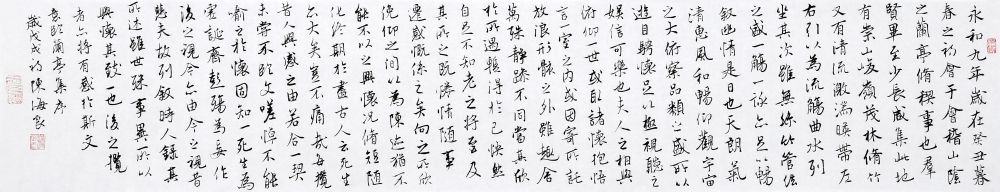 永和九年歲在癸丑暮
春之初會于會稽山陰
之蘭亭脩禊事也羣
賢畢至少長咸集此地
有崇山峻嶺茂林脩竹
又有清流激湍暎帶左
右引以為流觴曲水列
坐其次雖無絲竹管弦
之盛一觴一詠亦足以暢
叙幽情是日也天朗氣
清惠風和暢仰觀宇宙
之大俯察品類之盛所以
遊目騁懷足以極視聽之
娛信可樂也夫人之相與
俯仰一世或取諸懷抱悟
言一室之內或因寄所託
放浪形骸之外雖趣舍
萬殊靜躁不同當其欣
於所遇輒得於己怏然
自足不知老之將至及
其所之既惓情隨事
遷感慨係之矣向之所欣
俛仰之間以為陳迹猶不
能不以之興懷況脩短隨
化終期於盡古人云死生
亦大矣豈不痛哉每攬
昔人興感之由若合一契
未嘗不臨文嗟悼不能
喻之於懷固知一死生為
虛誕齊彭殤為妄作
後之視今亦由今之視昔
悲夫故列叙時人錄其
所述雖世殊事異所以
興懷其致一也後之攬
者亦將有感於斯文
意臨蘭亭集序
歲戊戌初陳海良